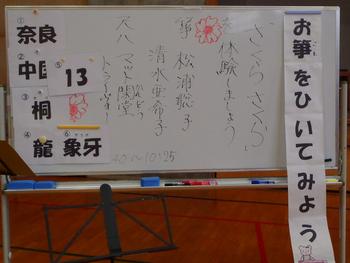 お箏をひいてみよう
「さくらさくら」
体験しましょう
箏 松浦聡子
清水亜希子
尺八
①
奈良
②
中国
③
桐
④
龍
⑤
13
⑥
象牙
~10:25